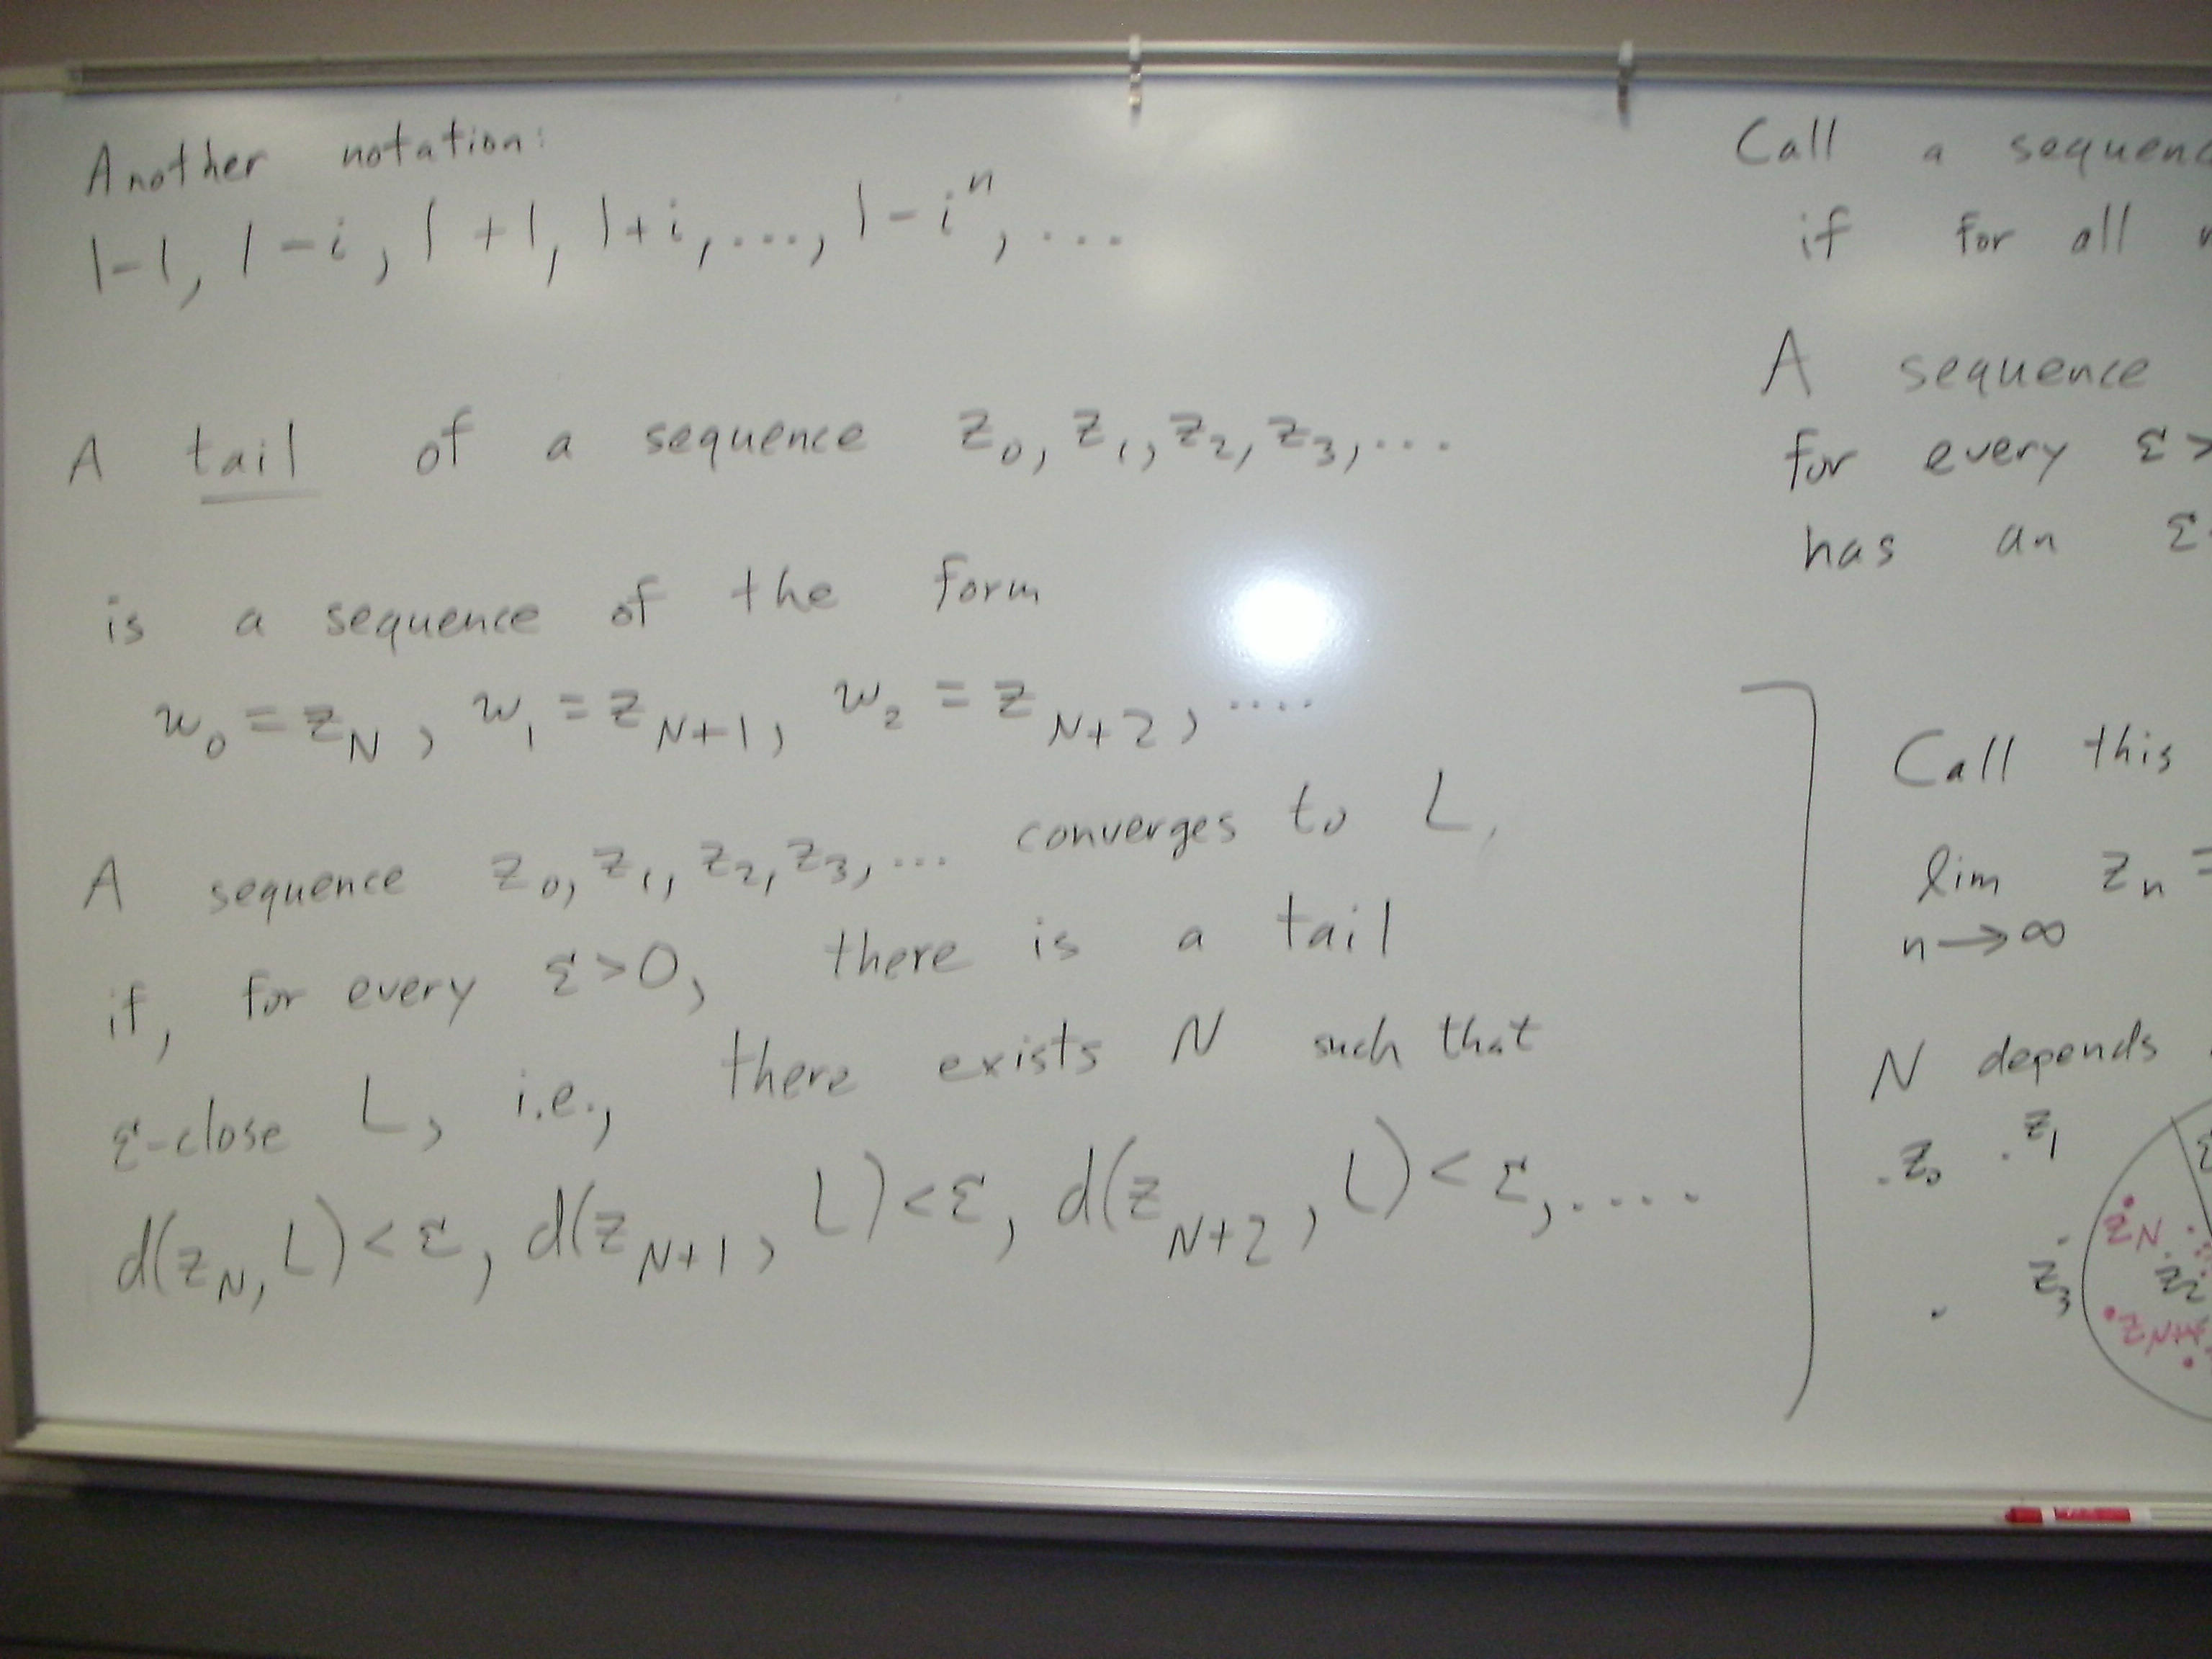 Another notation:
1-1, 1-i, 1+1, 1+i, ..., 1-iⁿ, ...
A tail of a sequence z₀, z₁, z₂, z₃, ...
is a sequence of the form
w₀ = z_N, w₁ = z_{N+1}, w₂ = z_{N+2}, ....
A sequence z₀, z₁, z₂, z₃, ... converges to L,
if, for every ε>0, there is a tail
ε-close L, i.e., there exists N such that
d(z_N, L) < ε, d(z_{N+1}, L) < ε, d(z_{N+2}, L) < ε, ....
Call a sequenc
if for all
A sequence
for every ε>
has an ε
Call this
lim z_n =
n→∞
N depends
z₀ z₁ ε
z_N
z₃ z₂